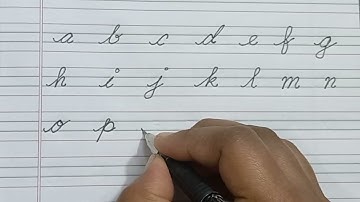 a b c d e f g
h i j k l m n
o p